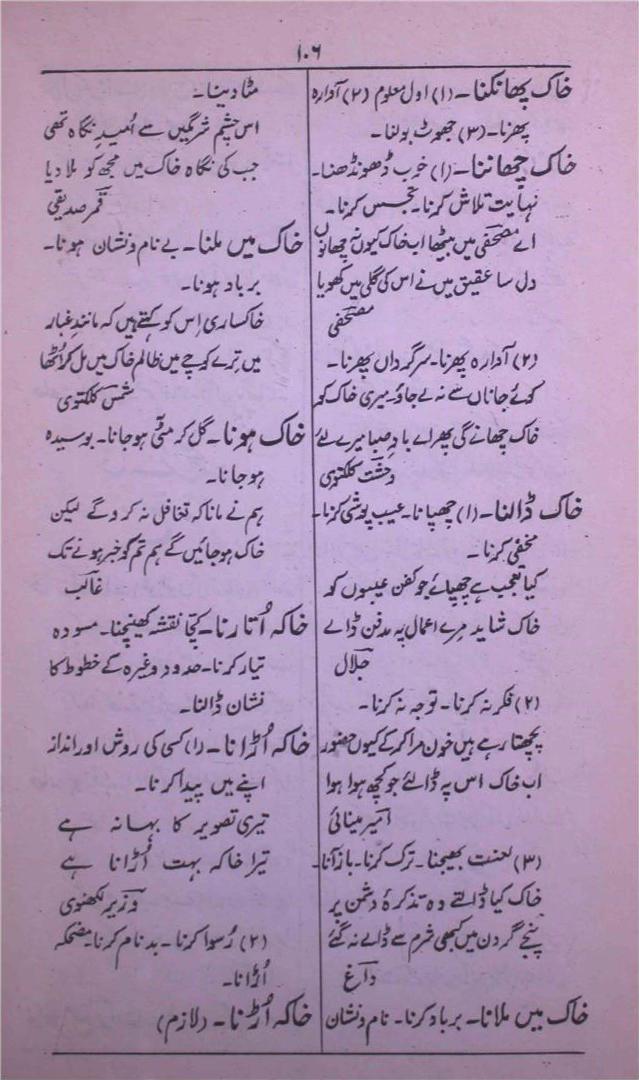 ۱۰۶
خاک پھانکنا۔ (۱) اول معلوم (۲) آوارہ
پھرنا۔ (۳) جھوٹ بولنا۔
خاک چھاننا۔ (۱) خوب ڈھونڈھنا۔
نہایت تلاش کرنا۔ تجسس کرنا۔
اے مصحفی میں بیٹھا اب خاک کیوں نہ چھانوں
دل سا عقیق میں نے اس کی گلی میں کھویا
مصحفی
(۲) آوارہ پھرنا۔ سرگرداں پھرنا۔
کوئے جاناں سے نہ لے جاؤ میری خاک کو
خاک چھانے گی پھر اے بادِ صبا میرے لئے
وحشت کلکتوی
خاک ڈالنا۔ (۱) چھپانا۔ عیب پوشی کرنا۔
مخفی کرنا۔
کیا تعجب ہے چھپائے جو کفن عیبوں کو
خاک شاید مرے اعمال پہ مدفن ڈالے
جلال
(۲) فکر نہ کرنا۔ توجہ نہ کرنا۔
پچھتا رہے ہیں خون مرا کر کے کیوں حضور
اب خاک اس پہ ڈالئے جو کچھ ہوا ہوا
امیر مینائی
(۳) لعنت بھیجنا۔ ترک کرنا۔ باز آنا۔
خاک کیا ڈالتے وہ تذکرۂ دشمن پر
پنجے گردن میں کبھی شرم سے ڈالے نہ گئے
داغ
خاک میں ملانا۔ برباد کرنا۔ نام و نشان
مٹا دینا۔
اس چشمِ شرمگیں سے اُمیدِ نگاہ تھی
جب کی نگاہ خاک میں مجھ کو ملا دیا
قمر صدیقی
خاک میں ملنا۔ بے نام و نشان ہونا۔
برباد ہونا۔
خاکساری اِس کو کہتے ہیں کہ مانند غبار
میں ترے کوچے میں ظالم خاک میں مل کر اُٹھا
شمس کلکتوی
خاک ہونا۔ گل کر مٹی ہو جانا۔ بوسیدہ
ہو جانا۔
ہم نے مانا کہ تغافل نہ کرو گے لیکن
خاک ہو جائیں گے ہم تم کو خبر ہونے تک
غالب
خاکہ اُتارنا۔ کچا نقشہ کھینچنا۔ مسودہ
تیار کرنا۔ حدود وغیرہ کے خطوط کا
نشان ڈالنا۔
خاکہ اُڑانا۔ (۱) کسی کی روش اور انداز
اپنے میں پیدا کرنا۔
تیری تصویر کا بہانہ ہے
تیرا خاکہ بہت اُڑانا ہے
وزیر لکھنوی
(۲) رُسوا کرنا۔ بدنام کرنا۔ مضحکہ
اُڑانا۔
خاکہ اُڑنا۔ (لازم)